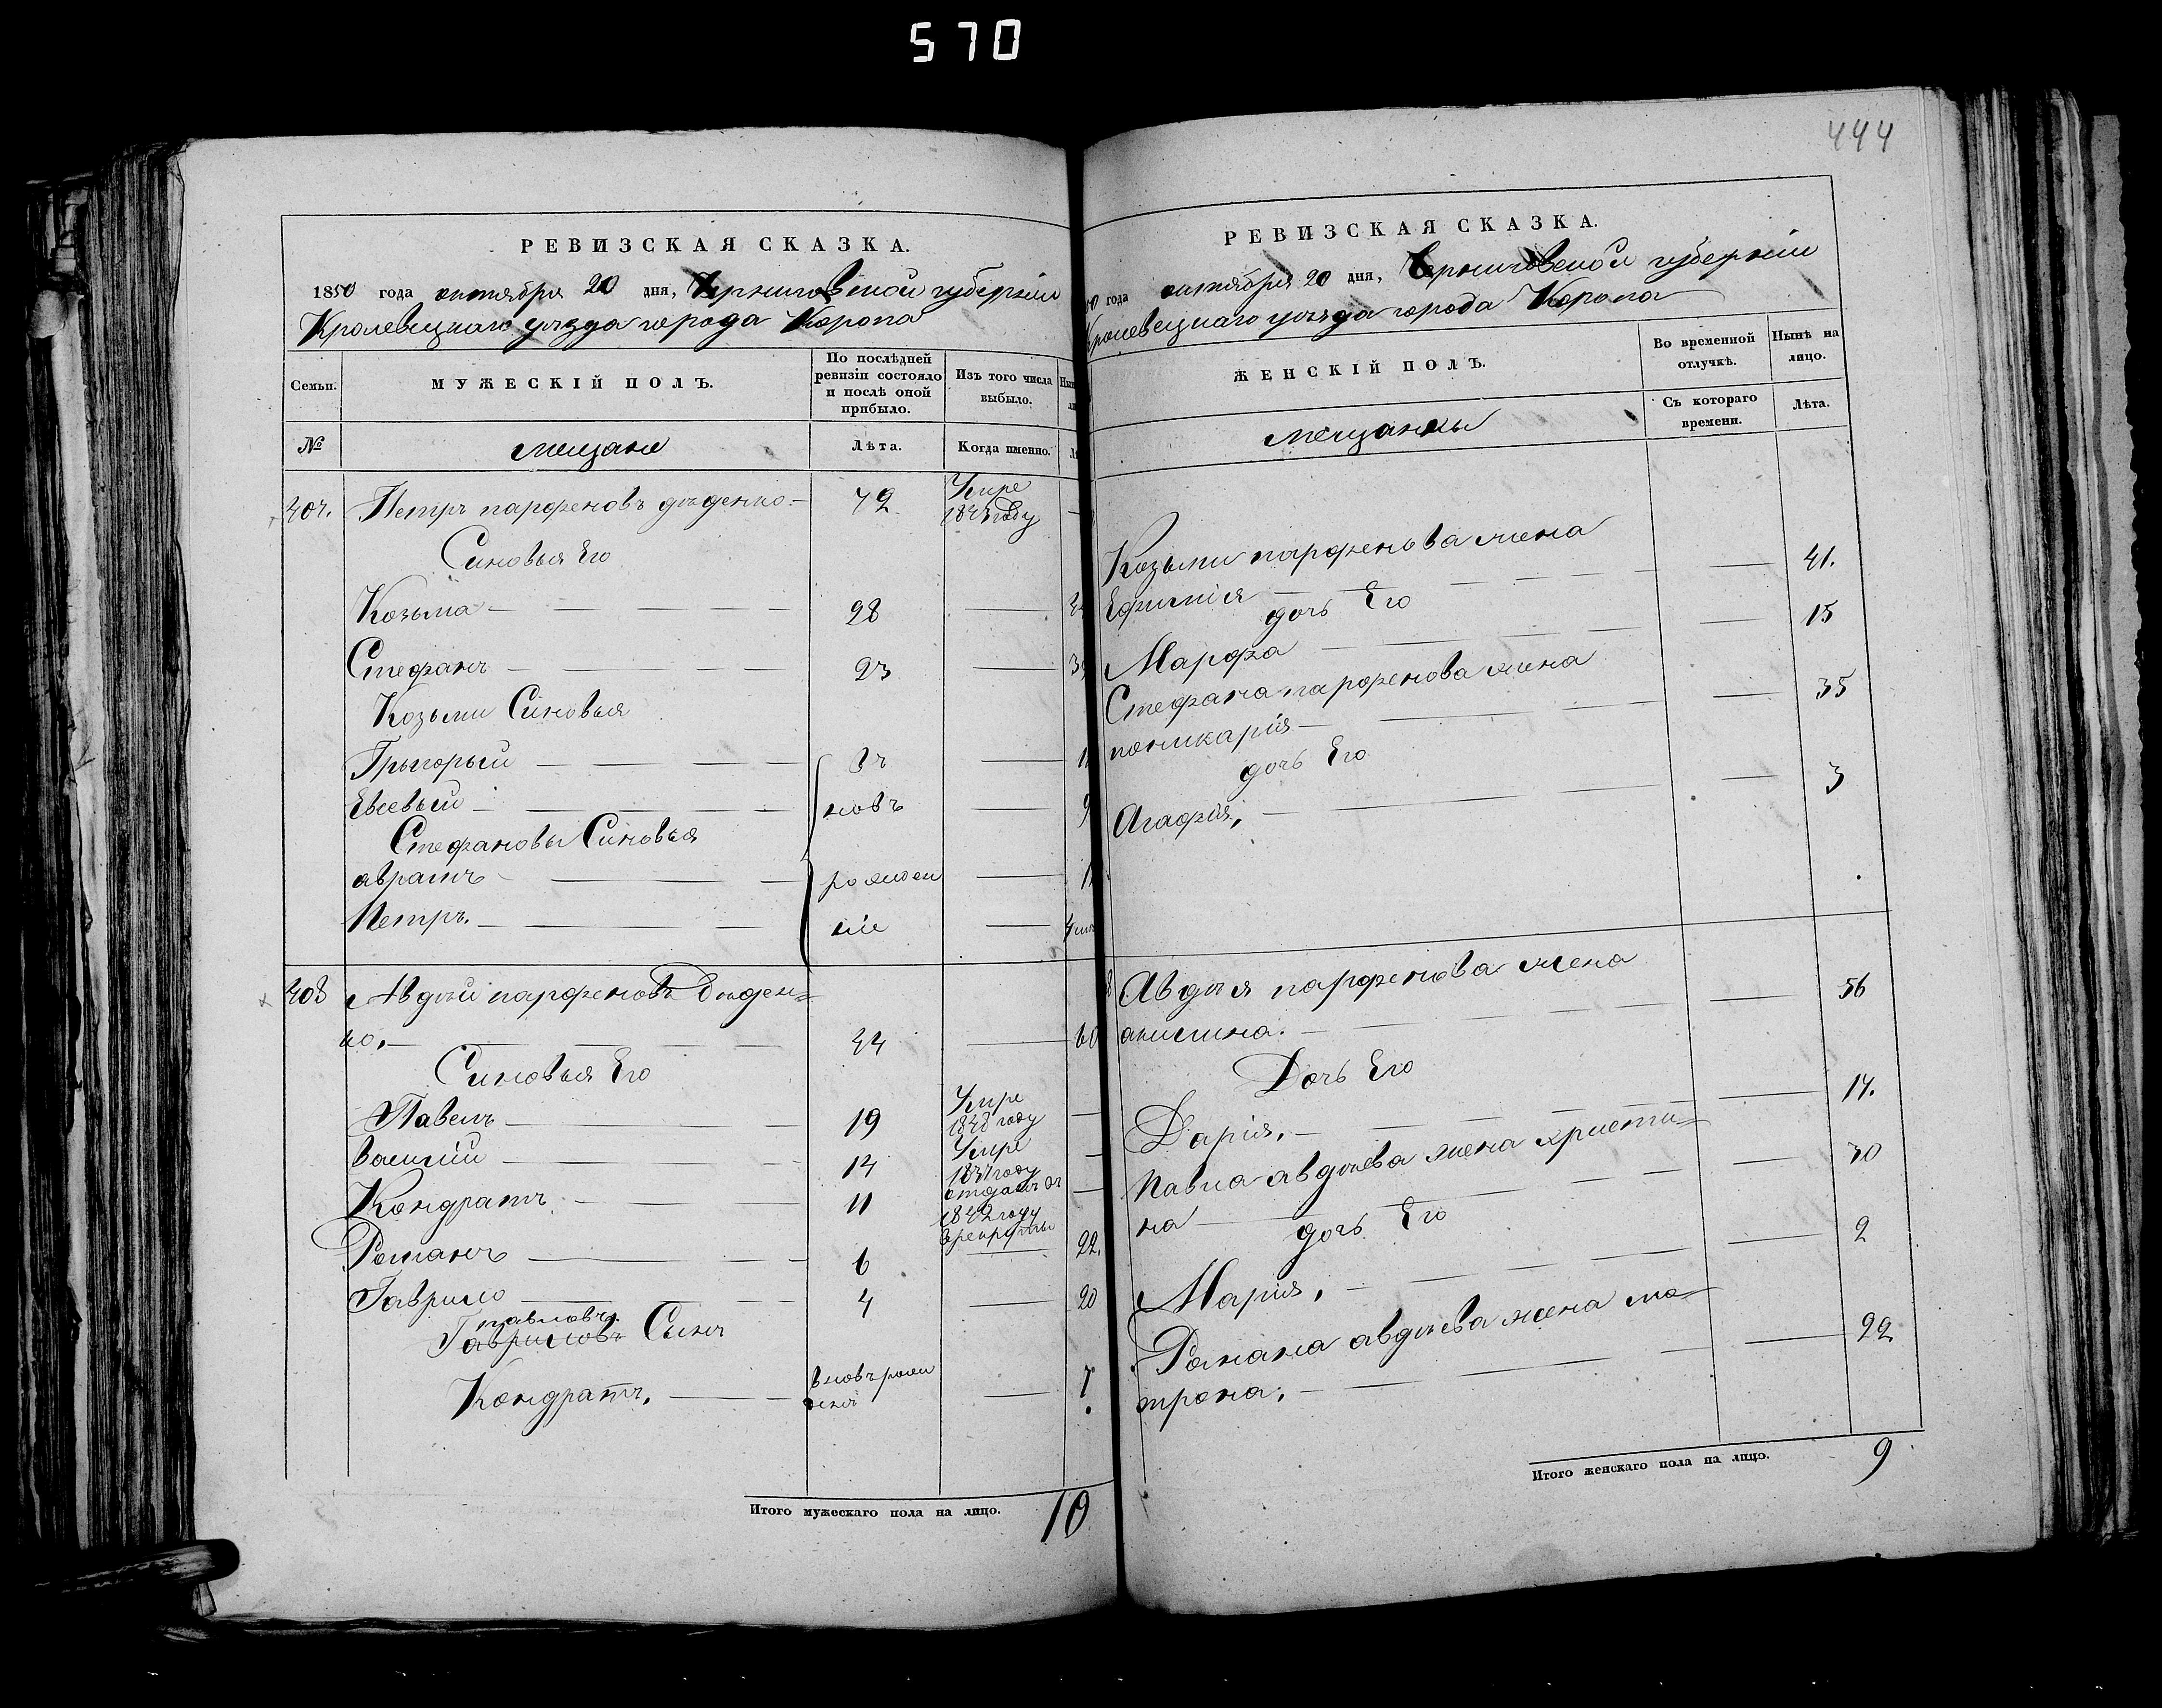 570
444
РЕВИЗСКАЯ СКАЗКА.
1850 года октября 20 дня, Черниговской губернии
Кролевецкаго уезда города Коропа
Семьи.
МУЖЕСКІЙ ПОЛЪ.
По послѣдней ревизіи состояло и послѣ оной прибыло.
Изъ того числа выбыло.
№
мещане
Лѣта.
Когда именно.
407. Петръ парфеновъ деденко 72 Умре
году
Синовья Его
Козьма 28
Стефанъ 23
Козьми Синовья
Грыгорый
Евсевый новъ
Стефановы Синовья
аврамъ рожден
Петръ. ніе
408 Авдѣй парфеновъ Дѣден=
ко. 44 60
Синовья Его
Павелъ 19 Умре
1848 году
василій 14 Умре
1837 году
Кондратъ 11 отданъ въ
1842 году
врекруты
Романъ 6 22.
Гаврило 4 20
павловъ
Гавриловъ Сынъ
Кондратъ. вновъ рожденъ 7
Итого мужескаго пола на лицо. 10
РЕВИЗСКАЯ СКАЗКА.
года октября 20 дня, Черниговской губерніи
Кролевецкаго уезда города Коропа
ЖЕНСКІЙ ПОЛЪ.
Во временной отлучкѣ.
Нынѣ на лицо.
мещанки
Съ котораго времени.
Лѣта.
Козьми парфенова жена
Ефимія 41.
дочь Его
Марфа 15
Стефана парфенова жена
поликарія 35
дочь Его
Агафія, 3
Авдѣя парфенова жена
акилина. 56
Дочь Его
Дарія, 17.
Павла авдѣева жена христи=
на 30
дочь Его
Марія, 2
Романа авдѣева жена ма=
трона, 22
Итого женскаго пола на лицо. 9